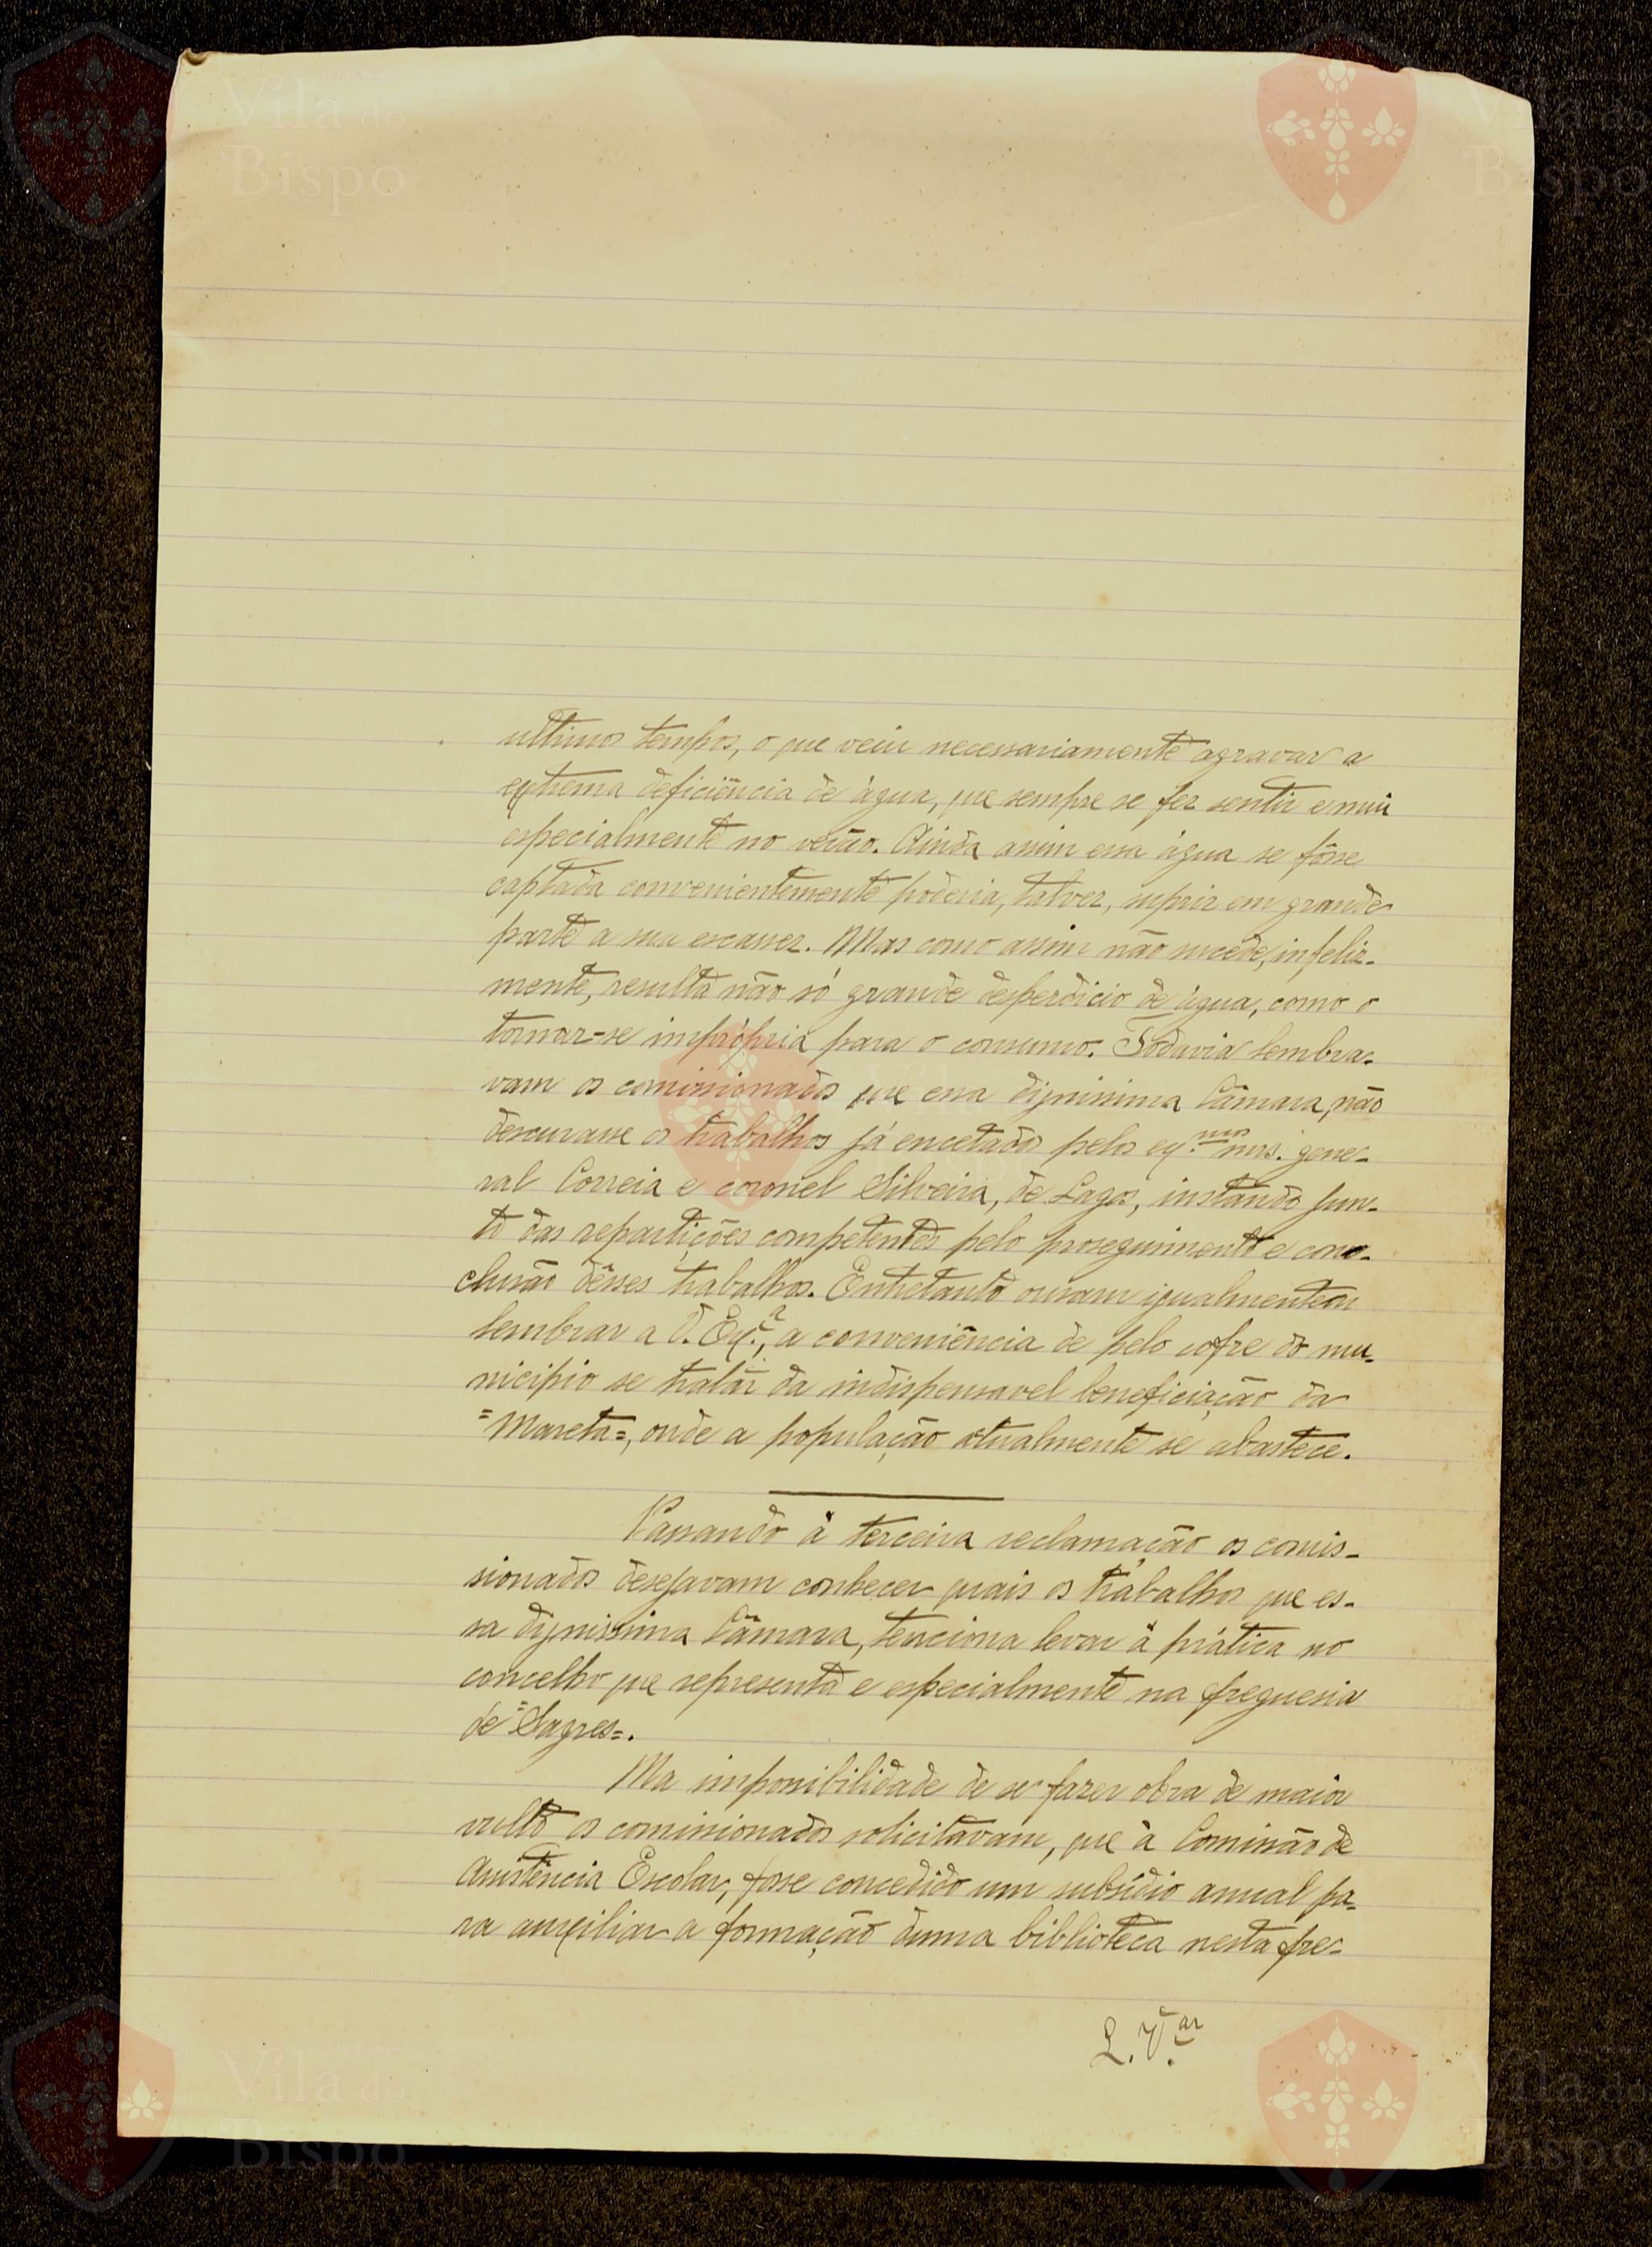 ultimos tempos, o que veiu necessariamente agravar a
extrema deficiência de água, que sempre se fez sentir e mui
especialmente no verão. Ainda assim essa água se fôsse
captada convenientemente poderia, talvez, suprir em grande
parte a sua escassez. Mas como assim não sucede, infeliz-
mente, resulta não só grande desperdicio de água, como o
tornar-se imprópria para o consumo. Todavia lembra-
vam os comissionados que essa dignissima Câmara, não
descurasse os trabalhos já encetados pelos ex.mos snrs. gene-
ral Correia e coronel Silveira, de Lagos, instando jun-
to das repartições competentes pelo proseguimento e con-
clusão dêsses trabalhos. Entretanto ousam igualmente
lembrar a V. Ex.a, a conveniência de pelo cofre do mu-
nicipio se tratar da indispensavel beneficiação da
=Mareta=, onde a população atualmente se abastece.
Passando á terceira reclamação os comis-
sionados desejavam conhecer quais os trabalhos que es-
sa dignissima Câmara, tenciona levar á prática no
concelho que representa e especialmente na freguesia
de =Sagres=.
Na impossibilidade de se fazer obra de maior
vulto os comissionados solicitavam, que à Comissão de
Assistência Escolar, fosse concedido um subsídio anual pa-
ra auxiliar a formação duma biblioteca nesta fre-
L. V.ar
Vila do
Bispo
Vila do
Bispo
Vila do
Bispo
Vila do
Bispo
Vila do
Bispo